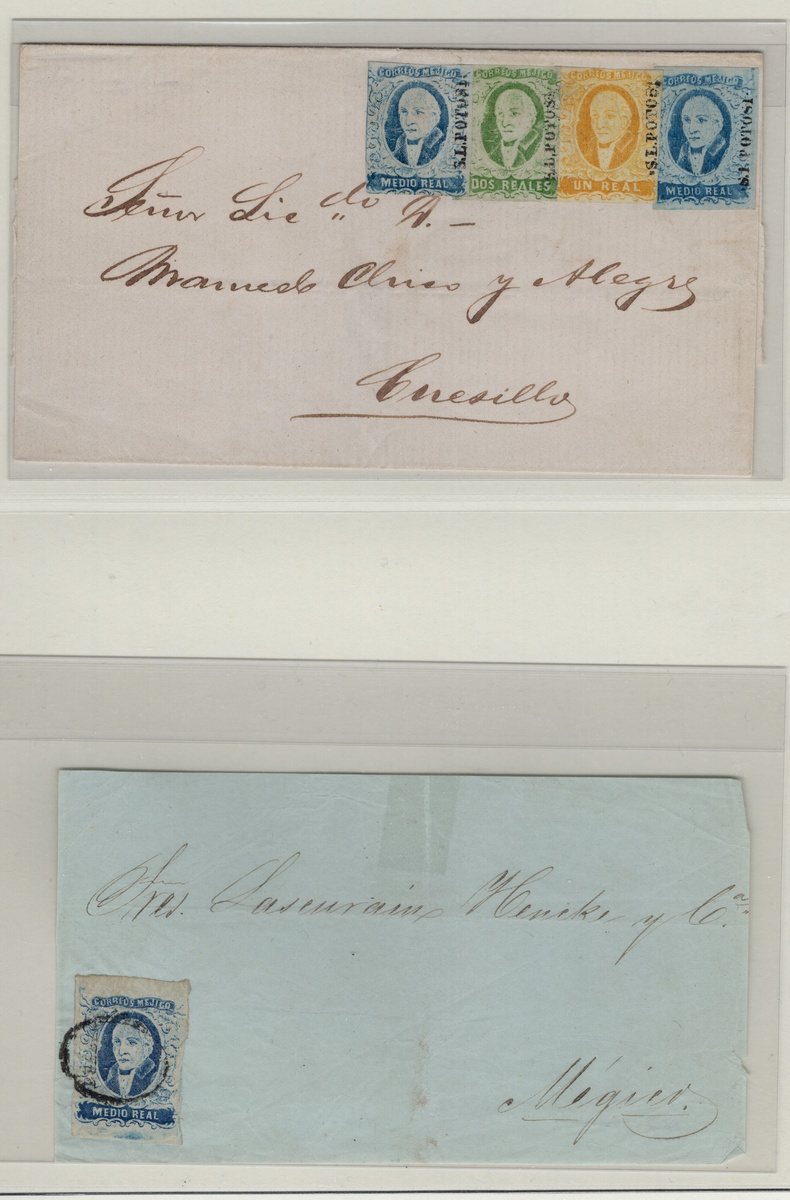 CORREOS MEJICO CORREOS MEJICO CORREOS MEJICO CORREOS MEJICO
S.L.POTOSI S.L.POTOSI S.L.POTOSI S.L.POTOSI
MEDIO REAL DOS REALES UN REAL MEDIO REAL
Señor Lic do D.
y Alegre
Cuesillo
Sres. Lascurain Hencke y Ca.
CORREOS MEJICO
MEDIO REAL
Mégico.